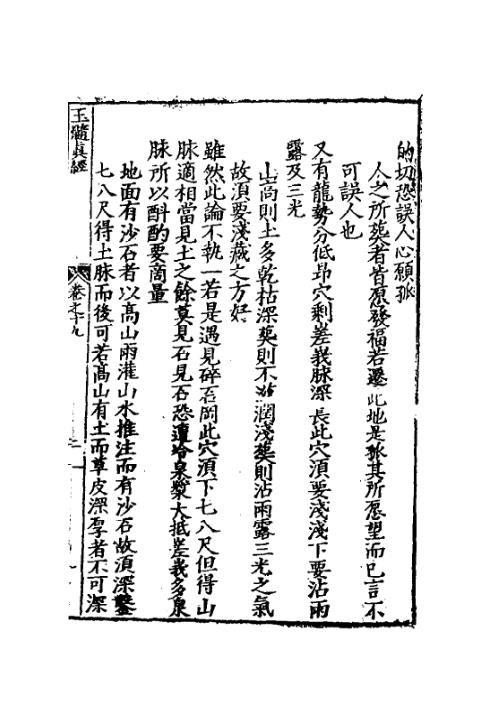 的切恐誤人心願孤
人之所葬者皆愿發福若遷此地是孤其所愿望而已言不
可誤人也
又有龍勢分低昻穴剩差峩脉深長此穴湏要淺淺下要沾雨
露及三光
山高則土多乾枯深葬則不沾潤淺葬則沾雨露三光之氣
故湏要淺藏之方好
雖然此論不執一若是遇見碎石岡此穴湏下七八尺但得山
脉適相當見土之餘莫見石見石恐遭冷泉漿大抵差峩多泉
脉所以斟酌要商量
地面有沙石者以髙山雨灌山水推注而有沙石故湏深鑿
七八尺得土脉而後可若髙山有土而草皮深厚者不可深
玉髓真經
卷之十九